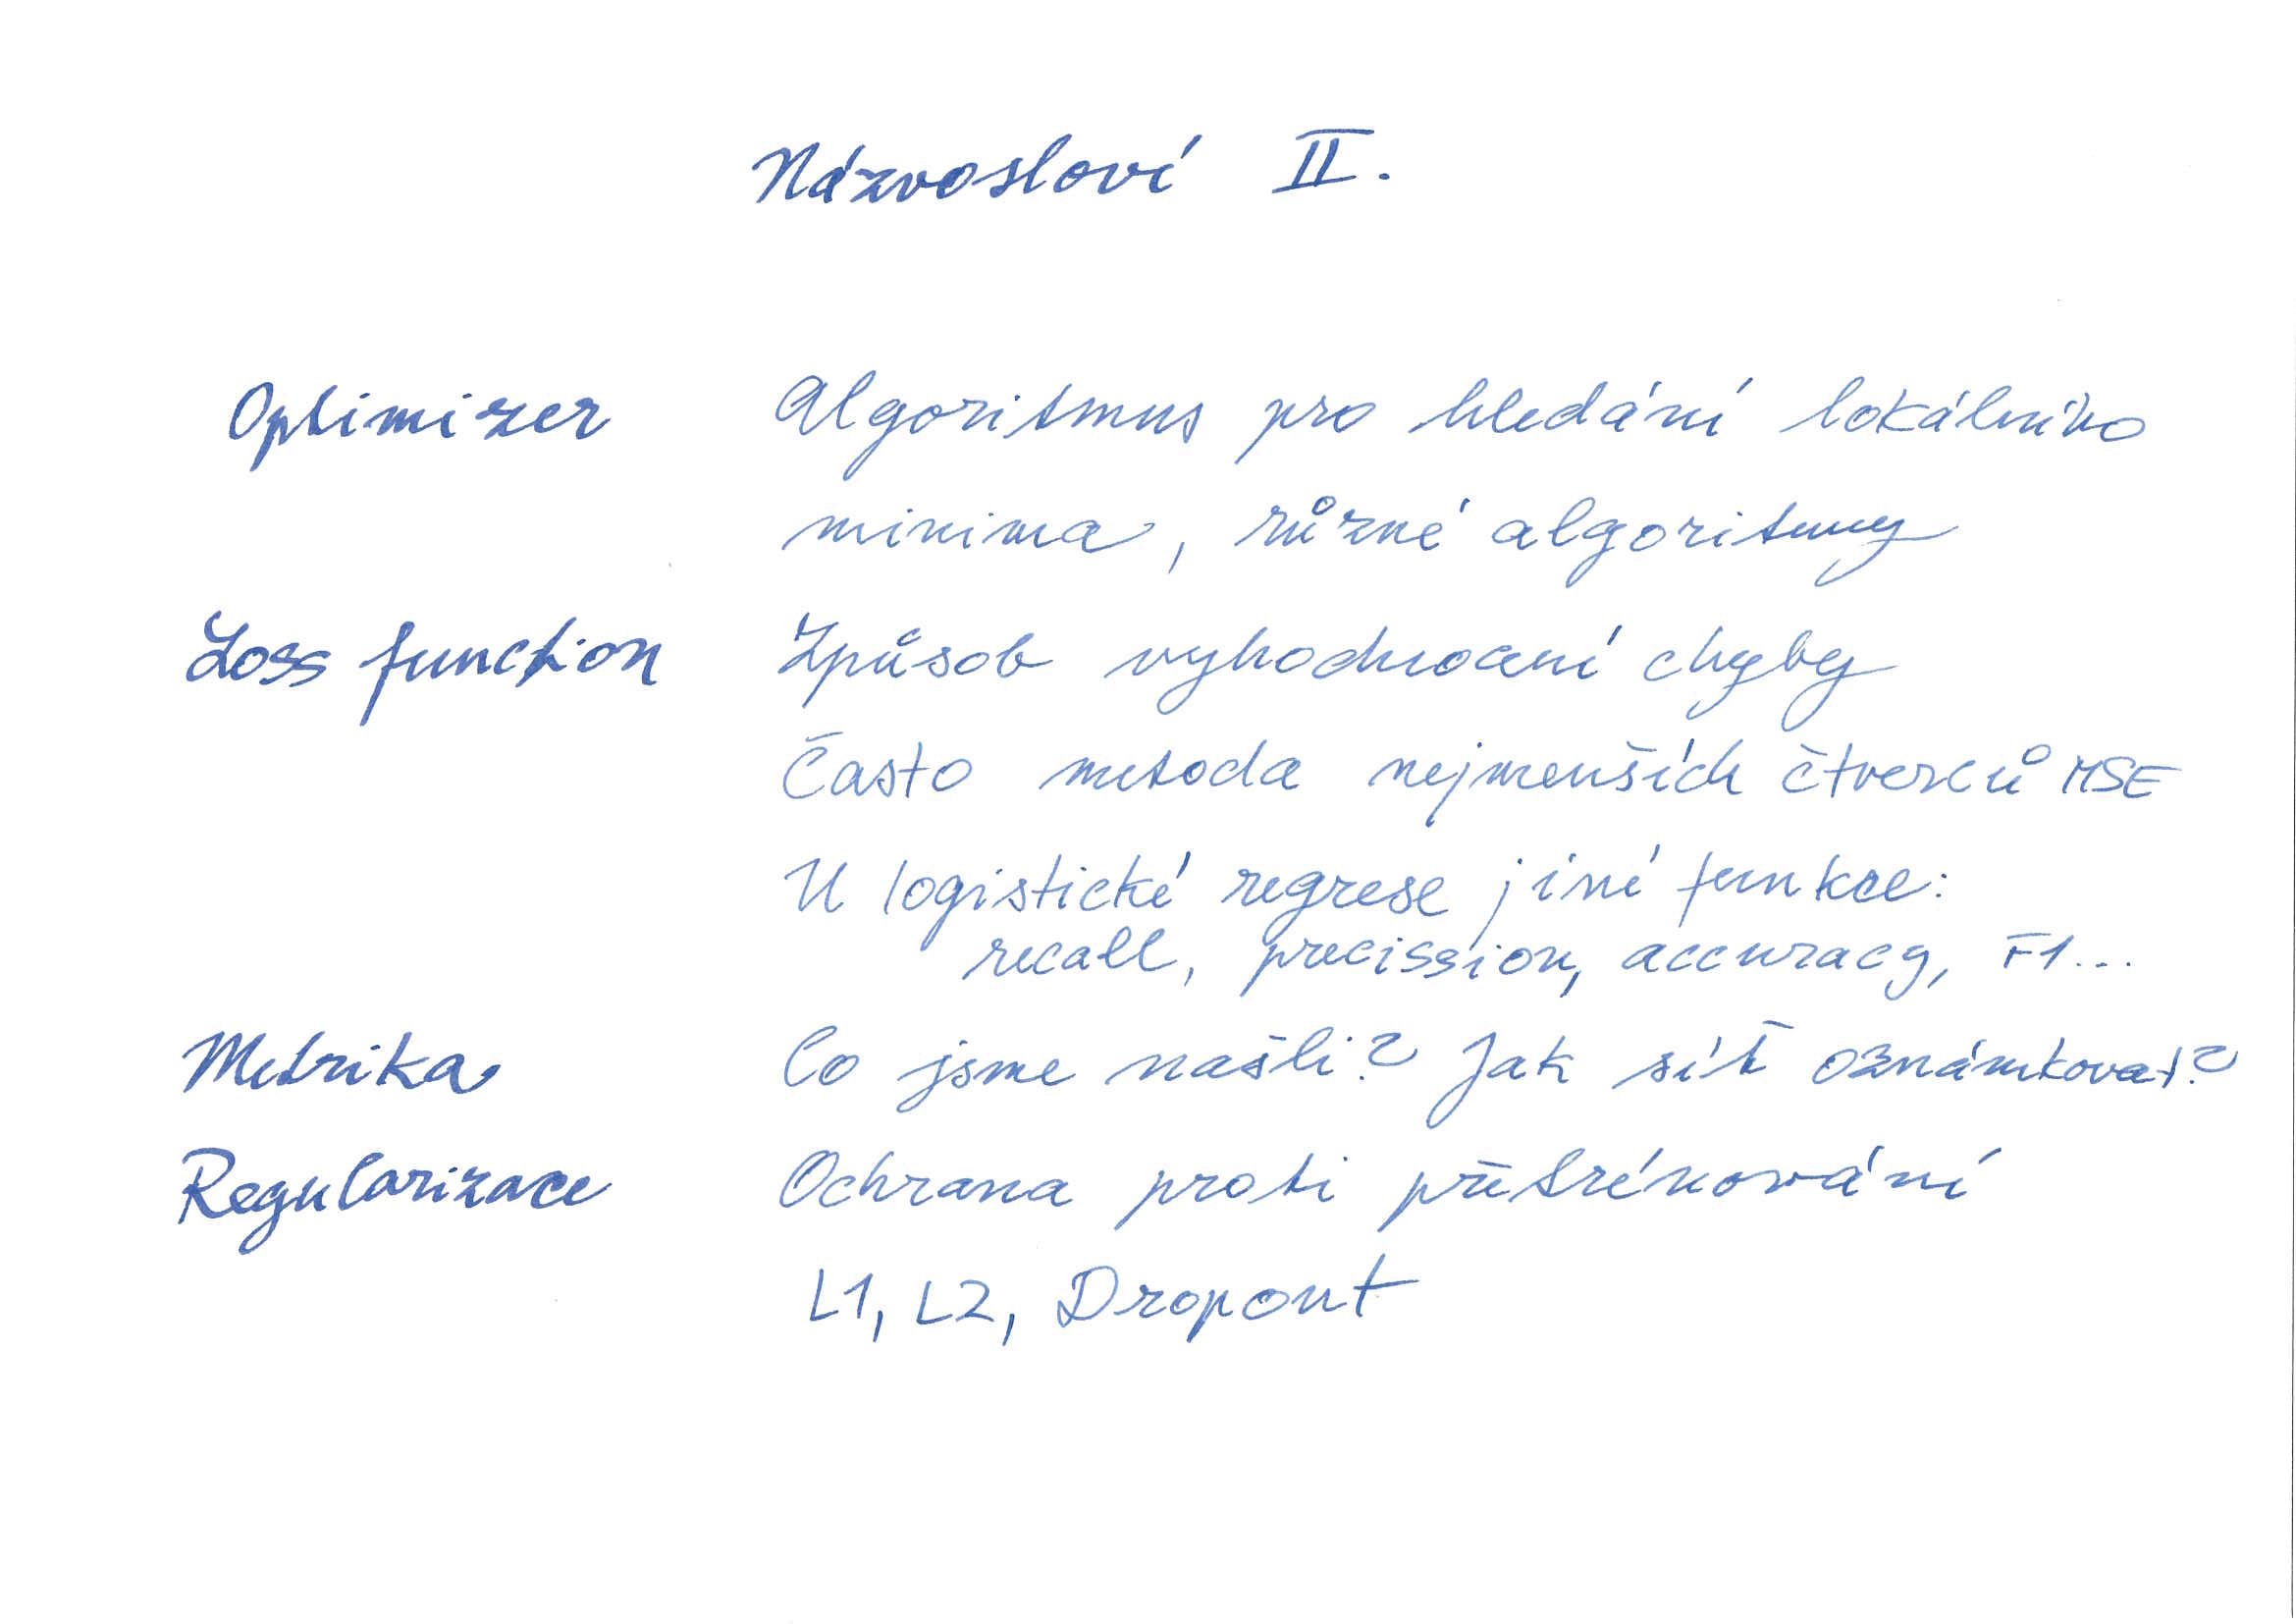 Názvosloví II.
Optimizer Algoritmus pro hledání lokálního
minima, různé algoritmy
Loss function Způsob vyhodnocení chyby
Často metoda nejmenších čtverců MSE
U logistické regrese jiné funkce:
recall, precission, accuracy, F1...
Metrika Co jsme našli? Jak síť oznámkovat?
Regularizace Ochrana proti přetrénování
L1, L2, Dropout